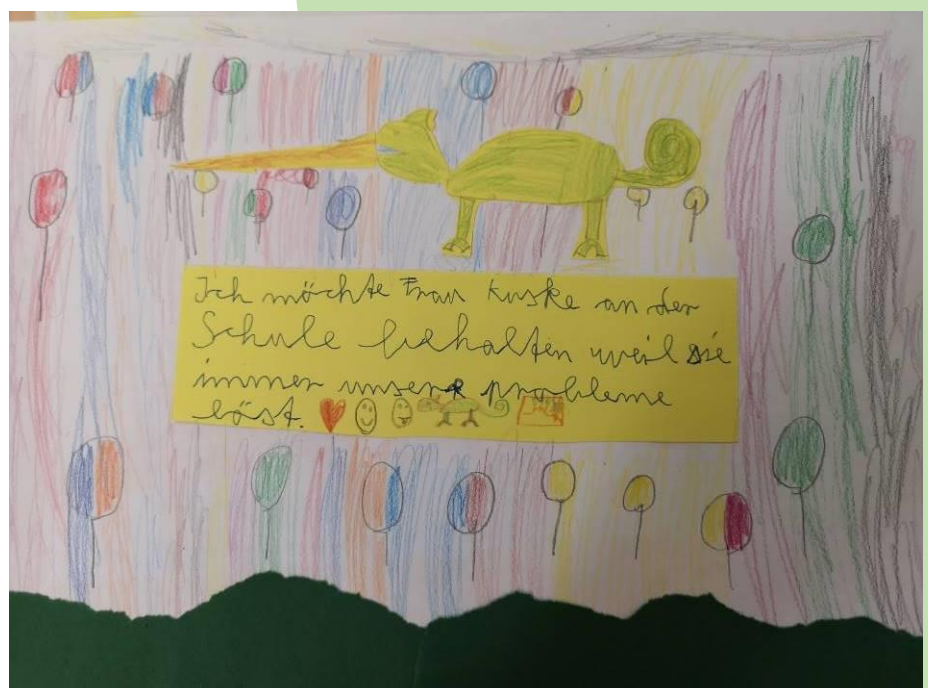 Ich möchte Frau Kuske an der
Schule behalten weil sie
immer unsere probleme
löst.